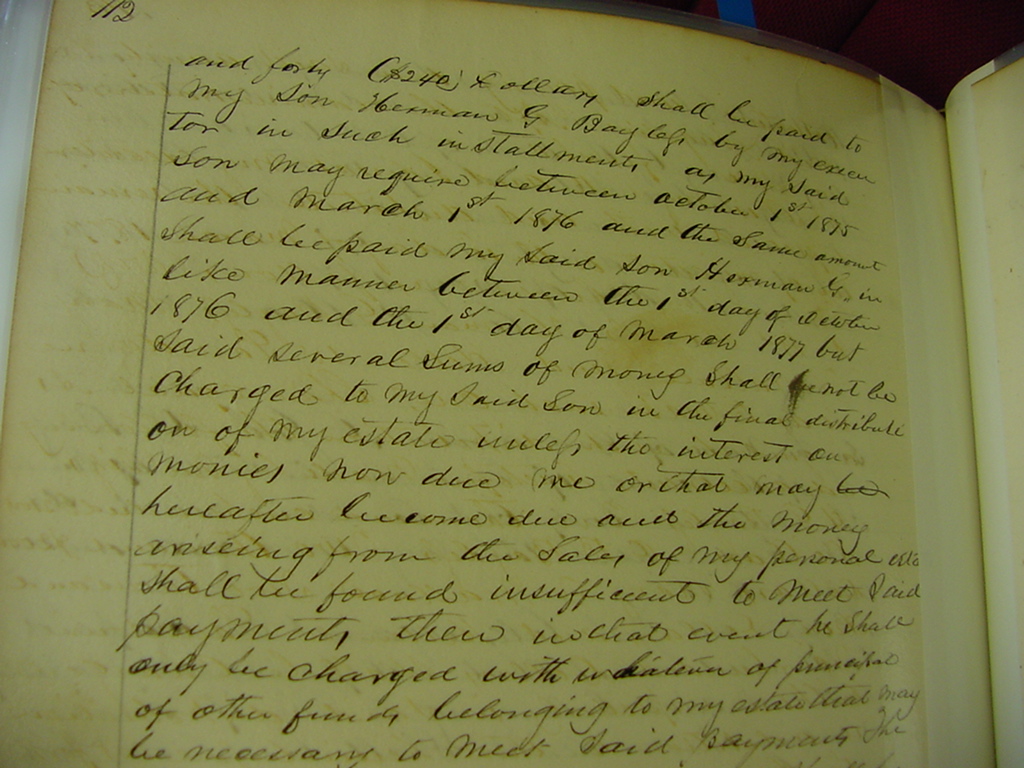 112
and forty ($240) Dollars shall be paid to
my Son Herman G Bayless by my execu
tor in such installments as my Said
Son may require between october 1st 1875
and March 1st 1876 and the Same amount
Shall be paid my Said Son Herman G. in
like manner between the 1st day of October
1876 and the 1st day of March 1877 but
Said several Sums of money Shall not be
Charged to my Said Son in the final distributi
on of my estate unless the interest on
monies now due me or that may be
hereafter become due and the money
ariseing from the Sales of my personal
shall be found insufficient to meet Said
payments then in that event he Shall
only be charged with whatever of principal
of other funds belonging to my estate that may
be necessary to meet Said Bayments The